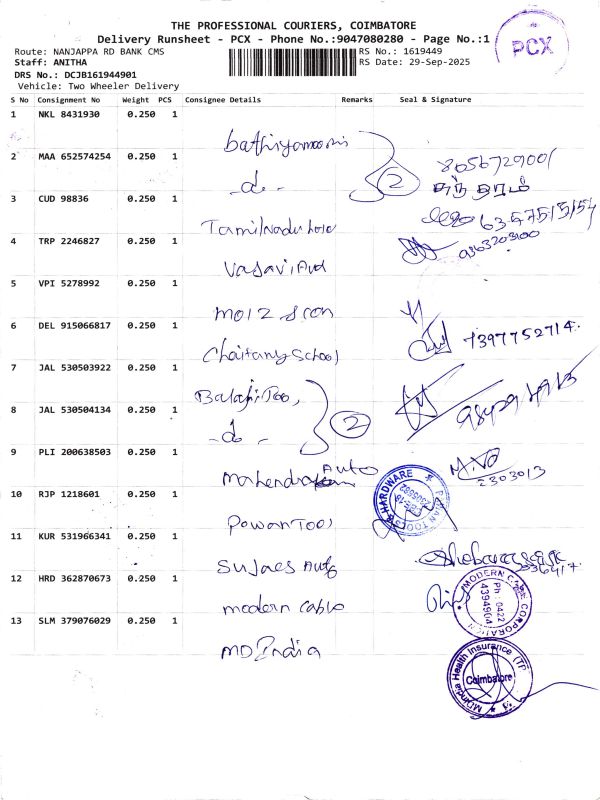 THE PROFESSIONAL COURIERS, COIMBATORE
Delivery Runsheet - PCX - Phone No.:9047080280 - Page No.:1
PCX
Route: NANJAPPA RD BANK CMS
RS No.: 1619449
Staff: ANITHA
RS Date: 29-Sep-2025
DRS No.: DCJB161944901
Vehicle: Two Wheeler Delivery
S No Consignment No Weight PCS Consignee Details Remarks Seal & Signature
1 NKL 8431930 0.250 1
2 MAA 652574254 0.250 1
-do- 2
3 CUD 98836 0.250 1
Tamilnadu
4 TRP 2246827 0.250 1
Vasavi
5 VPI 5278992 0.250 1
6 DEL 915066817 0.250 1
7397752714
Chaitany School
7 JAL 530503922 0.250 1
Balaji Too,
8 JAL 530504134 0.250 1
-do- 2
9 PLI 200638503 0.250 1
Mahendra Auto
2303013
10 RJP 1218601 0.250 1
HARDWARE
Pawan Tools
11 KUR 531966341 0.250 1
Sujaes Auto
12 HRD 362870673 0.250 1
MODERN CABLE CORPORATION
Ph : 0422
4394504
modern cable
13 SLM 379076029 0.250 1
MD India
MDIndia Health Insurance (TP
Coimbatore